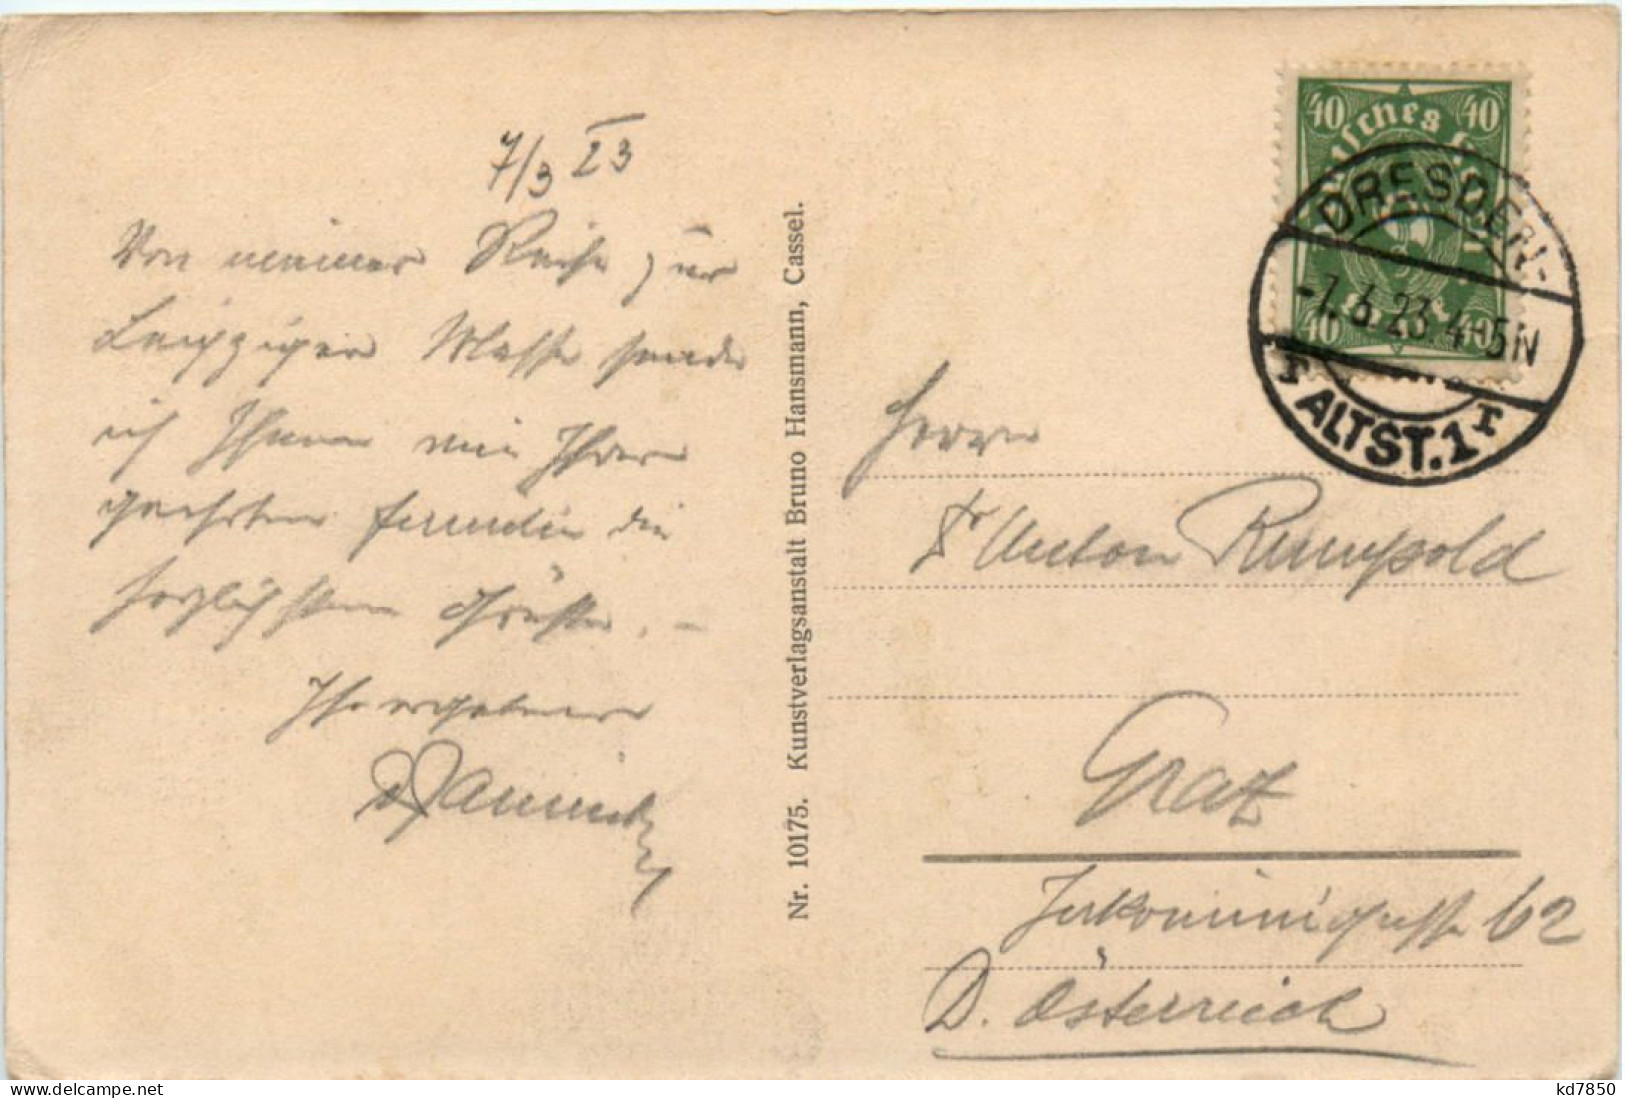 7/3 23
Von meiner Reise zur
Leipziger Messe sende
ich Ihnen wie Ihrer
geehrten Familie die
herzlichsten Grüße. –
Ihr ergebener
Nr. 10175. Kunstverlagsanstalt Bruno Hansmann, Cassel.
40 40
Deutsches Reich
40 Mark 40
DRESDEN-
-7.3.23 4-5N
ALTST.1
r r
Herrn
Dr Anton Rumpold
Graz
Jakominigasse 62
D. Österreich
delcampe.net
kd7850